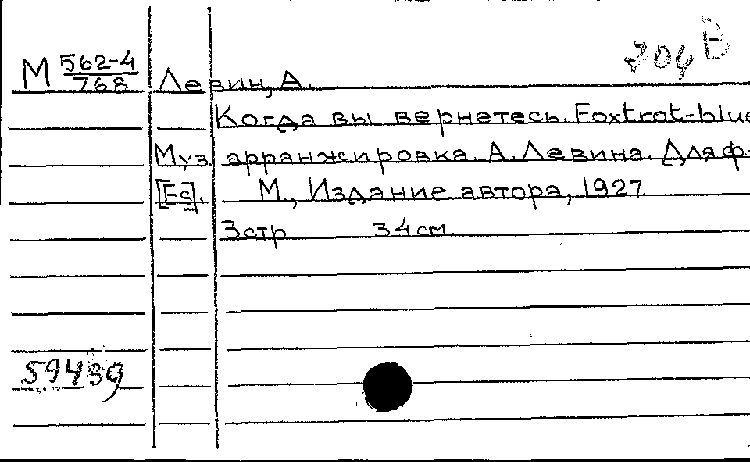 М 562-4/768 Левин, А. 204 В
Когда вы вернетесь. Foxtrot-blue
Муз. арранжировка. А. Левина. Для ф-
[Es]. М., Издание автора, 1927
3 стр 34 см.
59439